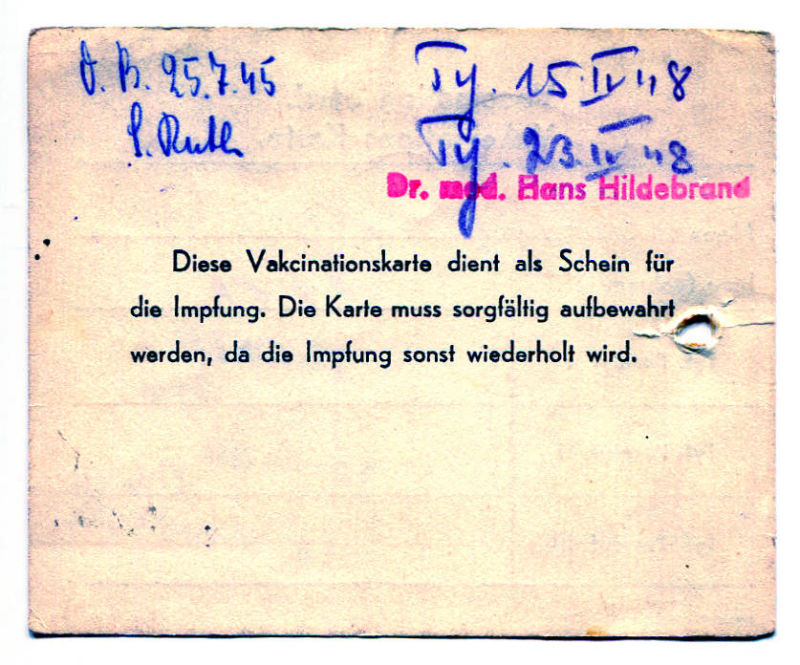 D. B. 25.7.45
S. Ruth
Ty. 15.IV 48
Ty. 23.IV 48
Dr. med. Hans Hildebrand
Diese Vakcinationskarte dient als Schein für
die Impfung. Die Karte muss sorgfältig aufbewahrt
werden, da die Impfung sonst wiederholt wird.